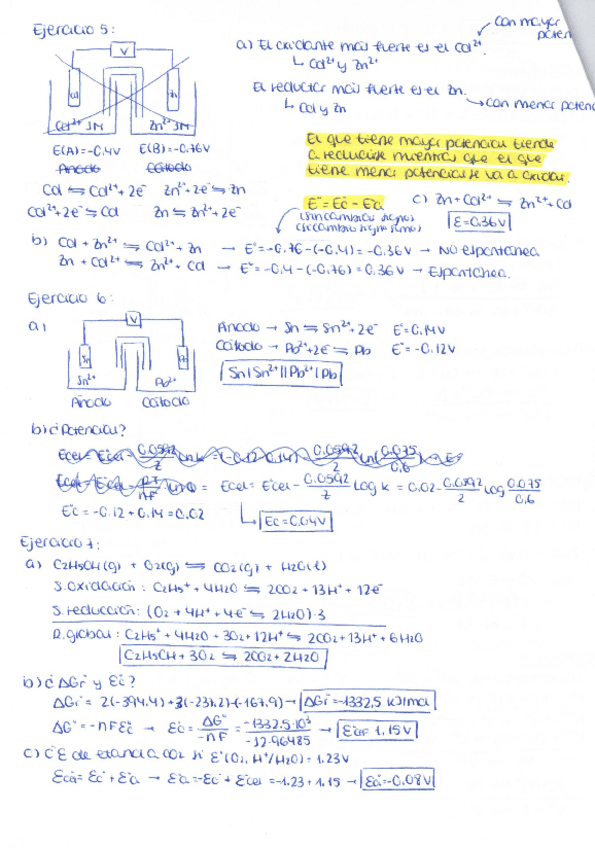 Ejercicio 5:
con mayor
poten
a) El oxidante más fuerte es el Cd²⁺.
↳ Cd²⁺ y Zn²⁺
El reductor más fuerte es el Zn.
↳ Cd y Zn
→ con menor potenc
V
Cd
Zn
Cd²⁺ 1M
Zn²⁺ 1M
E(A)=-0.4V E(B)=-0.76V
Ánodo Cátodo
El que tiene mayor potencial tiende
a reducirse mientras que el que
tiene menor potencial se va a oxidar.
Cd ⇋ Cd²⁺+2e⁻ Zn²⁺+2e⁻ ⇋ Zn
Cd²⁺+2e⁻ ⇋ Cd Zn ⇋ Zn²⁺+2e⁻
E° = E°c - E°a
(sin cambiar signo)
(si cambio signo sumo)
c) Zn + Cd²⁺ ⇋ Zn²⁺ + Cd
E=0.36V
b) Cd + Zn²⁺ ⇋ Cd²⁺ + Zn → E°=-0.76-(-0.4)=-0.36V → No espontánea
Zn + Cd²⁺ ⇋ Zn²⁺ + Cd → E°=-0.4-(-0.76)=0.36V → Espontánea.
Ejercicio 6:
a)
V
Sn
Pb
Sn²⁺
Pb²⁺
Ánodo Cátodo
Ánodo → Sn ⇋ Sn²⁺+2e⁻ E°=0.14V
Cátodo → Pb²⁺+2e⁻ ⇋ Pb E°=-0.12V
Sn|Sn²⁺||Pb²⁺|Pb
b) ¿Potencial?
= Ecel = E°cel - 0.0592/z log k = 0.02 - 0.0592/2 log 0.075/0.6
E°c = -0.12+0.14=0.02
Ec=0.04V
Ejercicio 7:
a) C2H5OH(g) + O2(g) ⇋ CO2(g) + H2O(l)
S. oxidación: C2H5⁺ + 4H2O ⇋ 2CO2 + 13H⁺ + 12e⁻
S. reducción: (O2 + 4H⁺ + 4e⁻ ⇋ 2H2O)·3
R. global: C2H5⁺ + 4H2O + 3O2 + 12H⁺ ⇋ 2CO2 + 13H⁺ + 6H2O
C2H5OH + 3O2 ⇋ 2CO2 + 2H2O
b) ¿ΔGr° y E°c?
ΔGr° = 2(-394.4)+3(-237.2)-(-167.9) → ΔGr°=-1332.5 kJ/mol
ΔG° = -nFE°c → E°c = ΔG°/-nF = -1332.5·10³/-12·96485 → E°c= 1.15V
c) ¿E de etanol a CO2 si E°(O2, H⁺/H2O)=1.23V
E°cel = E°c + E°a → E°a = -E°c + E°cel = -1.23 + 1.15 → E°a=-0.08V